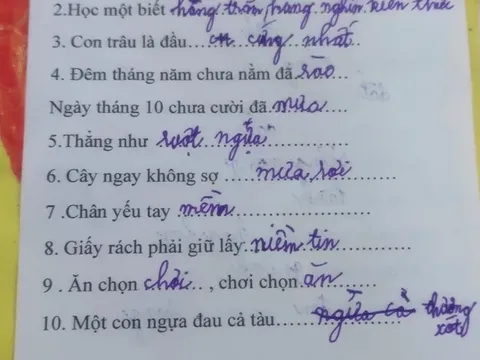 2.Học một biết hàng trăm, hàng nghìn kiến thức
3. Con trâu là đầu... cứng nhất..
4. Đêm tháng năm chưa nằm đã rào...
Ngày tháng 10 chưa cười đã.mưa......
5.Thẳng như ruột ngựa..............
6. Cây ngay không sợ .....mưa rơi.......
7 .Chân yếu tay mềm......................
8. Giấy rách phải giữ lấy.niềm tin..........
9 . Ăn chọn chơi.. , chơi chọn ăn.........
10. Một con ngựa đau cả tàu...ngựa cả thương
xót